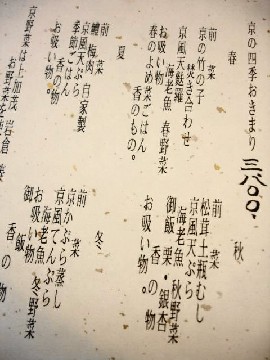 京の四季おきまり 三八〇〇、
春
前菜
京の竹の子
焚き合わせ
京風天麩羅
海老魚 春野菜
お吸い物
春のよめ菜ごはん
香のもの。
夏
前菜
鱧梅肉 自家製
京風天ぷら
季節ごはん
お吸い物。
香の物
京野菜は上加茂 岩倉
お野菜
秋
前菜
松茸土瓶むし
京風天ぷら
海老魚 秋野菜
御飯 栗・銀杏
お吸い物。
香の物
冬
前菜
京かぶら蒸し
京風てんぷら
海老魚 冬野菜
御飯
お吸い物。
香の物